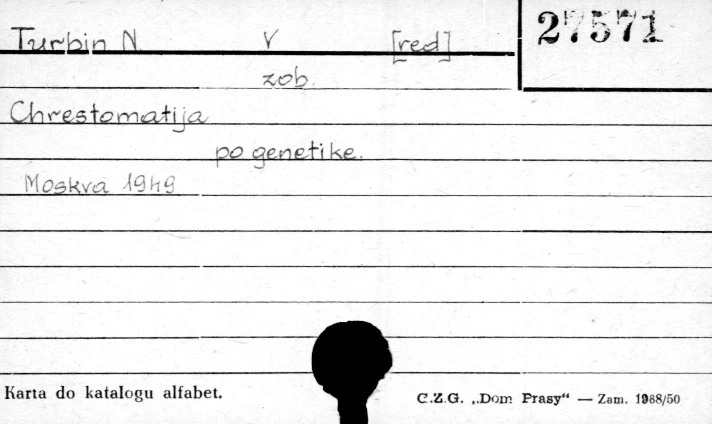 Turbin N. V [red]
27571
zob.
Chrestomatija
po genetike.
Moskva 1949
Karta do katalogu alfabet.
C.Z.G. „Dom Prasy“ — Zam. 1968/50